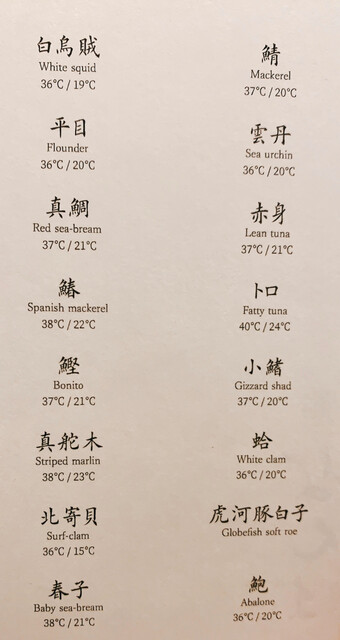 白烏賊
White squid
36°C / 19°C
平目
Flounder
36°C / 20°C
真鯛
Red sea-bream
37°C / 21°C
鰆
Spanish mackerel
38°C / 22°C
鰹
Bonito
37°C / 21°C
真舵木
Striped marlin
38°C / 23°C
北寄貝
Surf-clam
36°C / 15°C
春子
Baby sea-bream
38°C / 21°C
鯖
Mackerel
37°C / 20°C
雲丹
Sea urchin
36°C / 20°C
赤身
Lean tuna
37°C / 21°C
トロ
Fatty tuna
40°C / 24°C
小鰭
Gizzard shad
37°C / 20°C
蛤
White clam
36°C / 20°C
虎河豚白子
Globefish soft roe
鮑
Abalone
36°C / 20°C